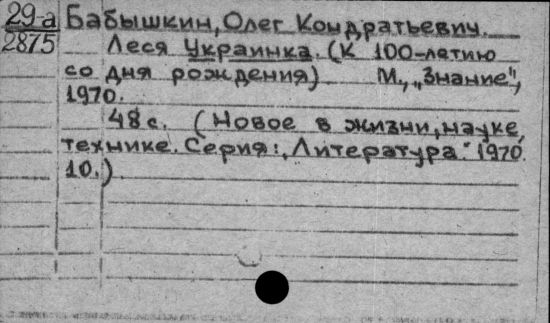 29-а Бабышкин, Олег Кондратьевич.
2875 Леся Украинка. (К 100-летию
со дня рождения) М., „Знание",
1970.
48 с. (Новое в жизни, науке,
технике. Серия: „Литература." 1970.
10.)